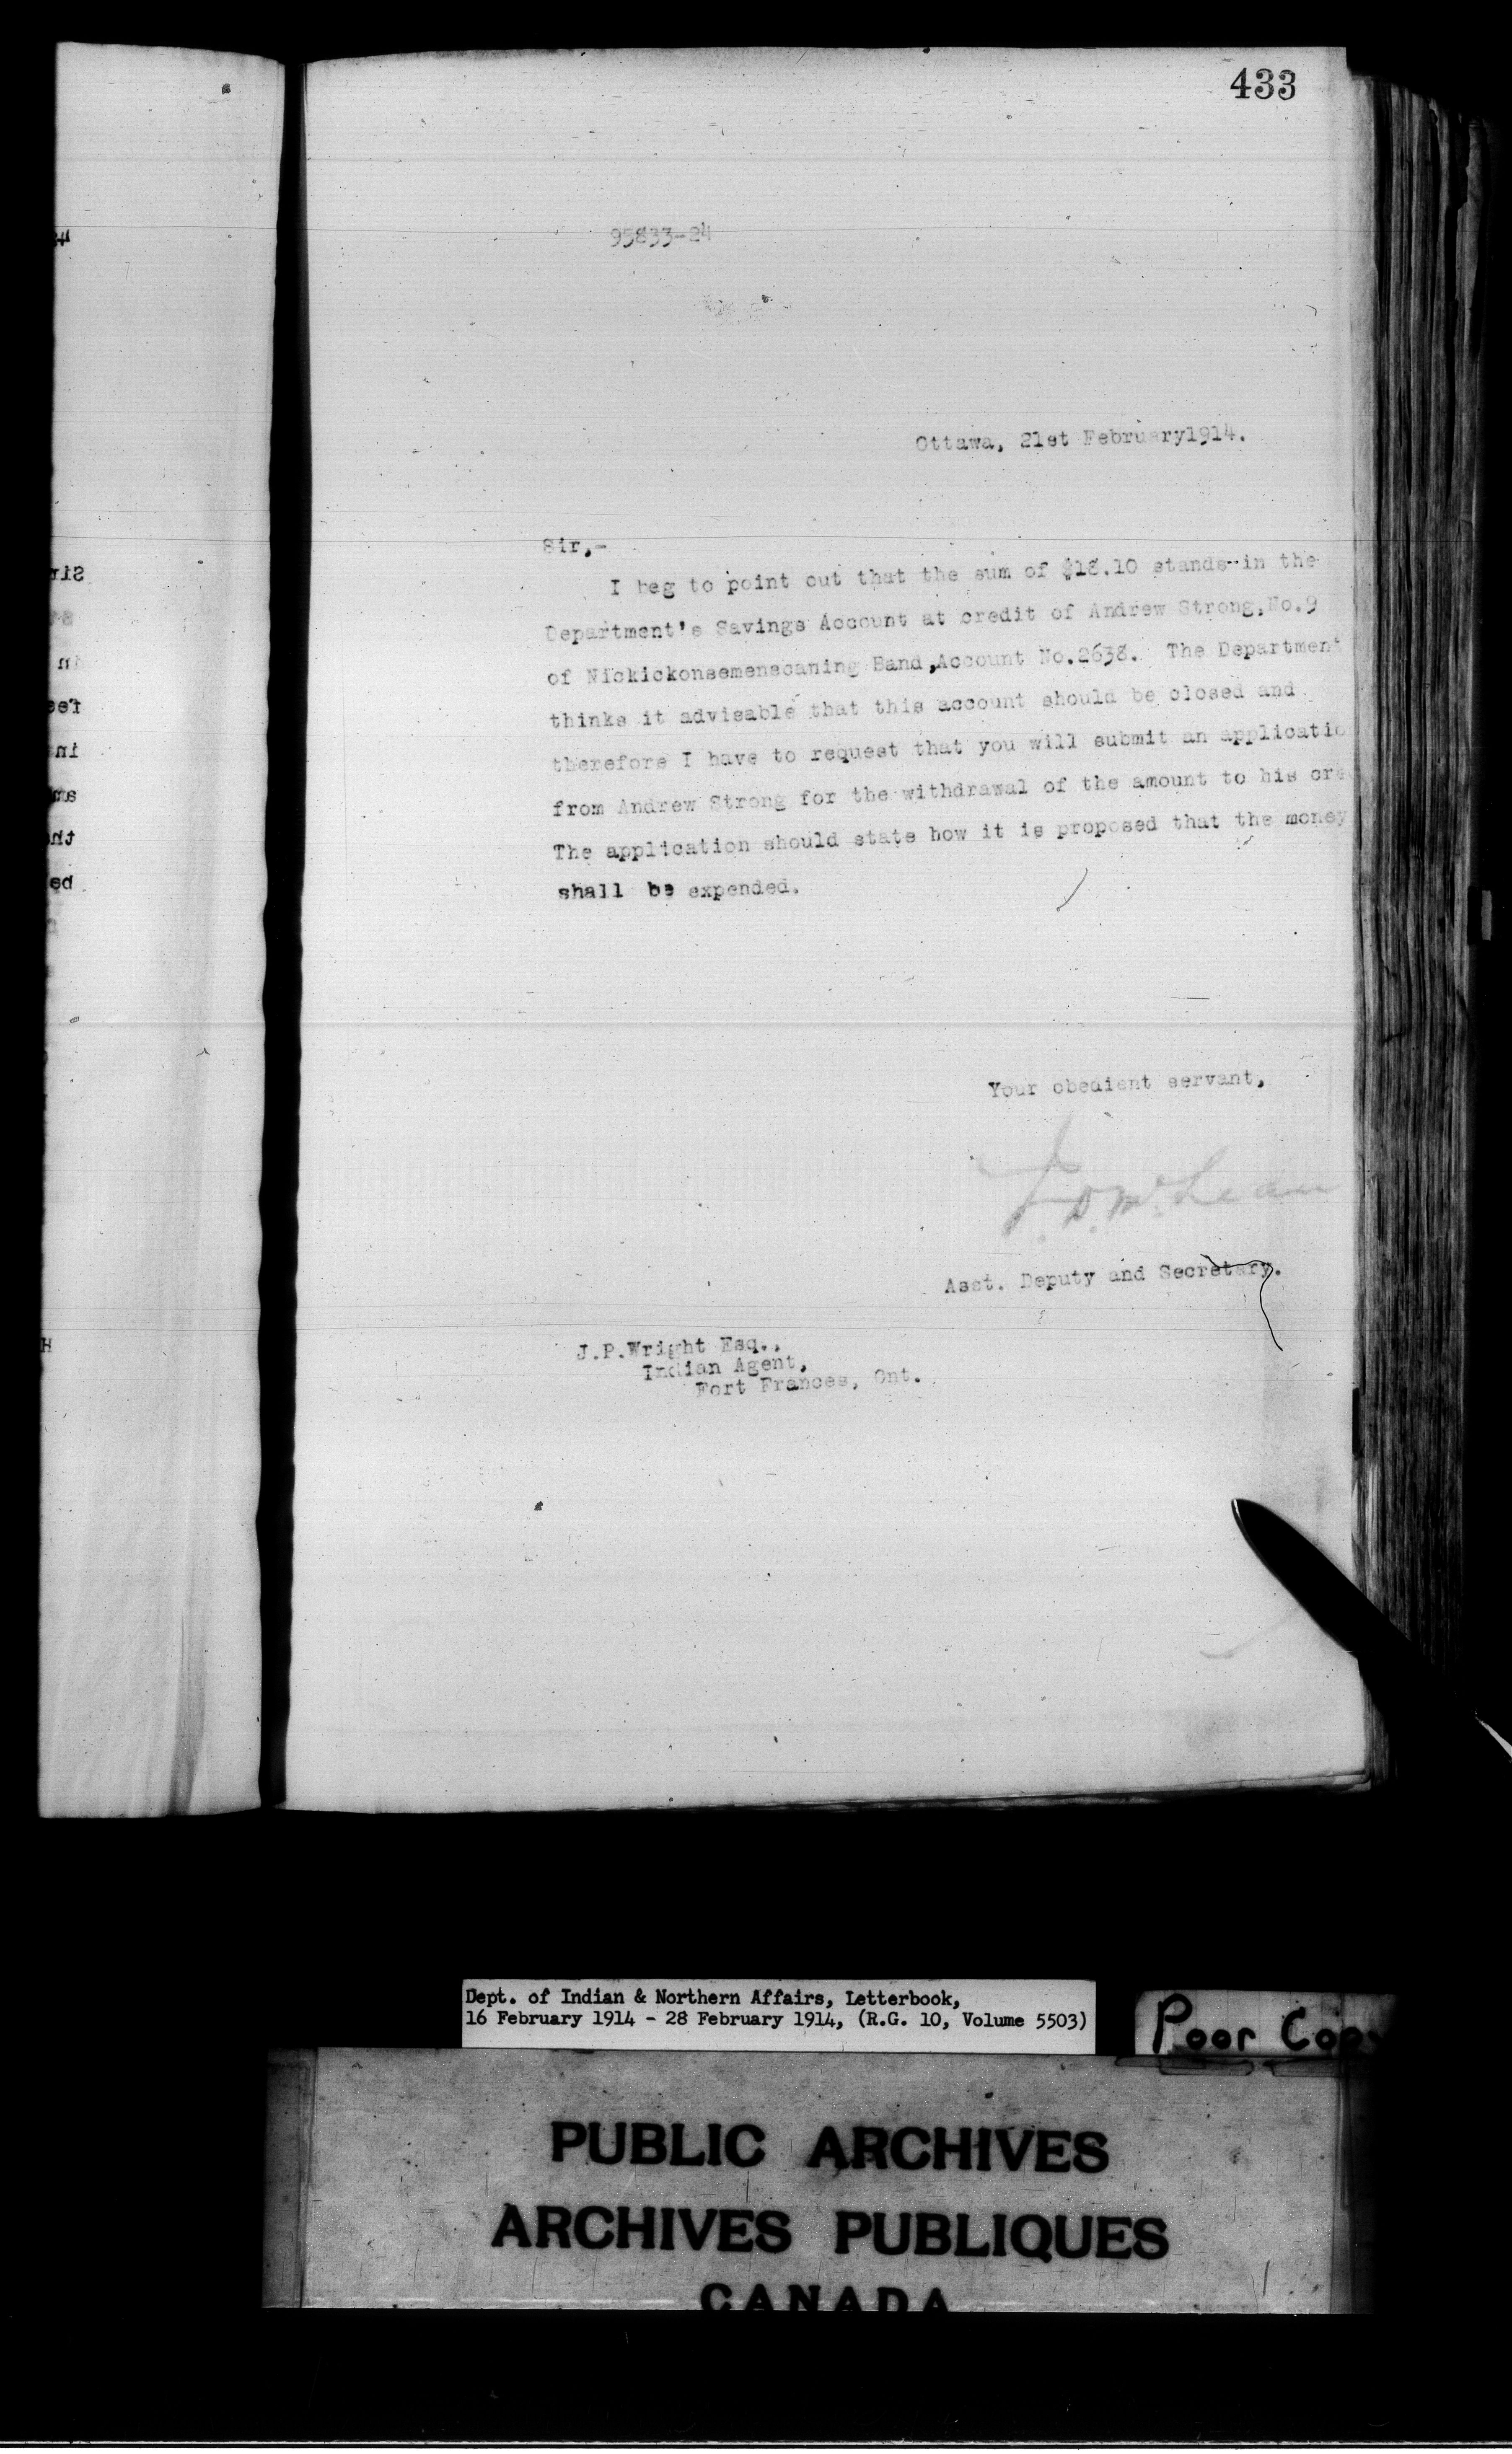 433
95833-24
Ottawa, 21st February1914.
Sir,-
I beg to point out that the sum of $18.10 stands in the
Department's Savings Account at credit of Andrew Strong,No.9
of Nickickonsemenecaning Band,Account No.2638. The Department
thinks it advisable that this account should be closed and
therefore I have to request that you will submit an applicatio
from Andrew Strong for the withdrawal of the amount to his cre
The application should state how it is proposed that the money
shall be expended.
Your obedient servant,
J. D. McLean
Asst. Deputy and Secretary.
J.P.Wright Esq.,
Indian Agent,
Fort Frances, Ont.
Dept. of Indian & Northern Affairs, Letterbook,
16 February 1914 - 28 February 1914, (R.G. 10, Volume 5503)
Poor Copy
PUBLIC ARCHIVES
ARCHIVES PUBLIQUES
CANADA